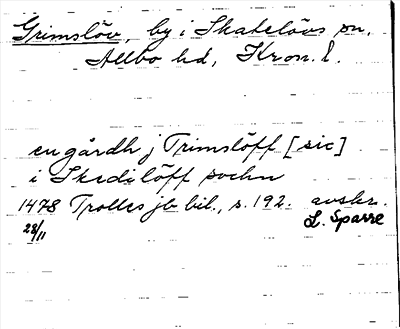 Grimslöv, by i Skatelövs sn,
Allbo hd, Kron. l.
en gårdh j Trimslöff [sic]
i Skedilöff sochn
1478 Trolles jb bil., s. 192. avskr.
28/11 L. Sparre